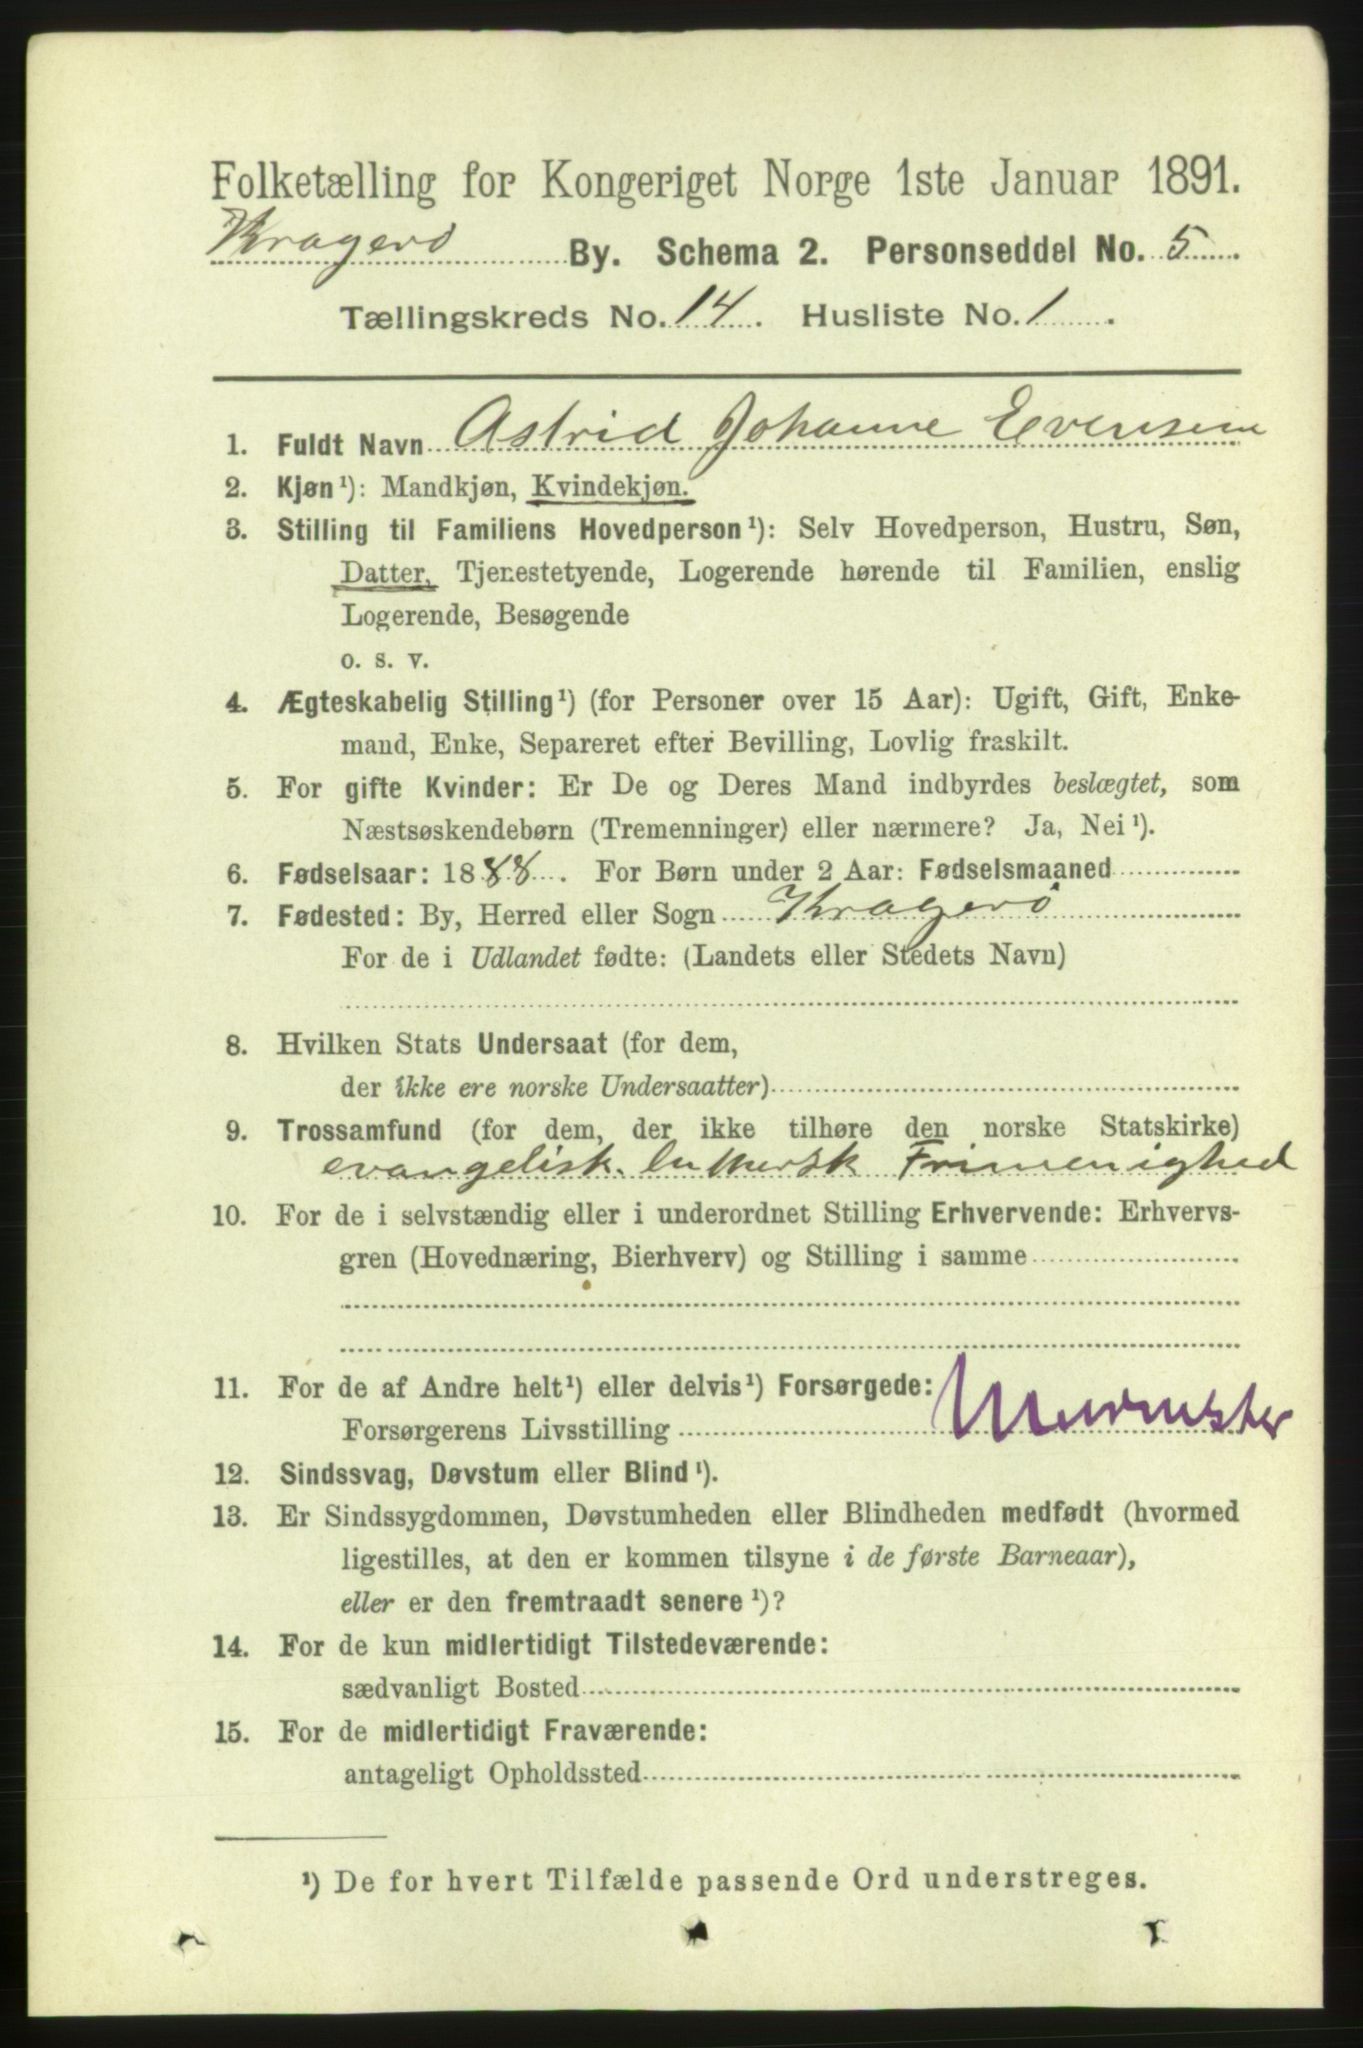 Folketælling for Kongeriget Norge 1ste Januar 1891.
Kragerø By. Schema 2. Personseddel No. 5
Tællingskreds No. 14. Husliste No. 1.
1. Fuldt Navn Astrid Johanne Evensen
2. Kjøn ¹): Mandkjøn, Kvindekjøn.
3. Stilling til Familiens Hovedperson ¹): Selv Hovedperson, Hustru, Søn,
Datter, Tjenestetyende, Logerende hørende til Familien, enslig
Logerende, Besøgende
o. s. v.
4. Ægteskabelig Stilling ¹) (for Personer over 15 Aar): Ugift, Gift, Enke-
mand, Enke, Separeret efter Bevilling, Lovlig fraskilt.
5. For gifte Kvinder: Er De og Deres Mand indbyrdes beslægtet, som
Næstsøskendebørn (Tremenninger) eller nærmere? Ja, Nei ¹).
6. Fødselsaar: 1888. For Børn under 2 Aar: Fødselsmaaned
7. Fødested: By, Herred eller Sogn Kragerø
For de i Udlandet fødte: (Landets eller Stedets Navn)
8. Hvilken Stats Undersaat (for dem,
der ikke ere norske Undersaatter)
9. Trossamfund (for dem, der ikke tilhøre den norske Statskirke)
evangelisk. luthersk Frimenighed
10. For de i selvstændig eller i underordnet Stilling Erhvervende: Erhvervs-
gren (Hovednæring, Bierhverv) og Stilling i samme
11. For de af Andre helt ¹) eller delvis ¹) Forsørgede:
Forsørgerens Livsstilling Murmester
12. Sindssvag, Døvstum eller Blind ¹).
13. Er Sindssygdommen, Døvstumheden eller Blindheden medfødt (hvormed
ligestilles, at den er kommen tilsyne i de første Barneaar),
eller er den fremtraadt senere ¹)?
14. For de kun midlertidigt Tilstedeværende:
sædvanligt Bosted
15. For de midlertidigt Fraværende:
antageligt Opholdssted
¹) De for hvert Tilfælde passende Ord understreges.